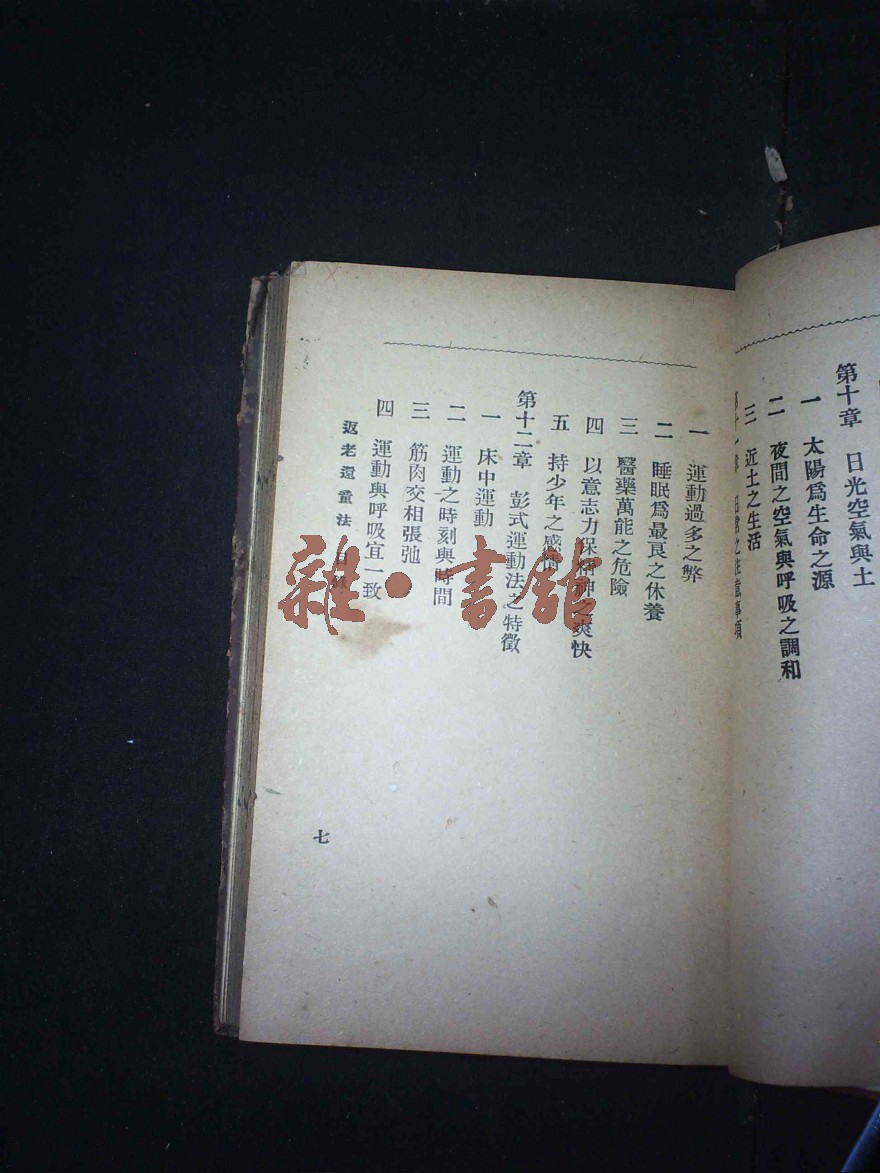 第十章　日光空氣與土
一　太陽爲生命之源
二　夜間之空氣與呼吸之調和
三　近土之生活
第十一章　日常之注意事項
一　運動過多之弊
二　睡眠爲最良之休養
三　醫藥萬能之危險
四　以意志力保精神之爽快
五　持少年之感情
第十二章　彭式運動法之特徵
一　床中運動
二　運動之時刻與時間
三　筋肉交相張弛
四　運動與呼吸宜一致
返老還童法　目
七
雜·書館